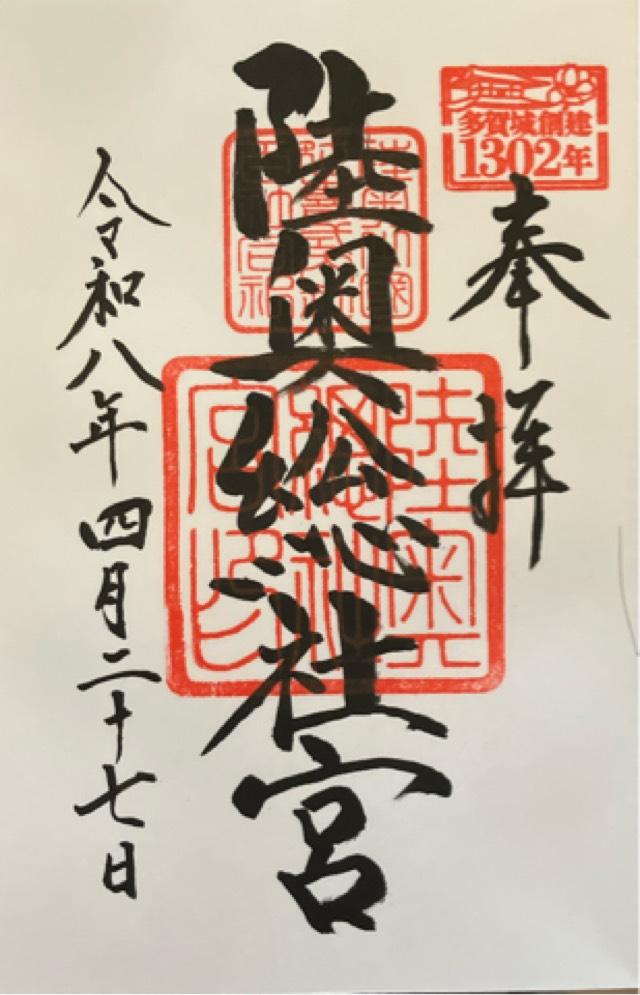 多賀城創建
1302年
奉拝
陸奥総社宮
陸奥
總社
宮印
令和八年四月二十七日